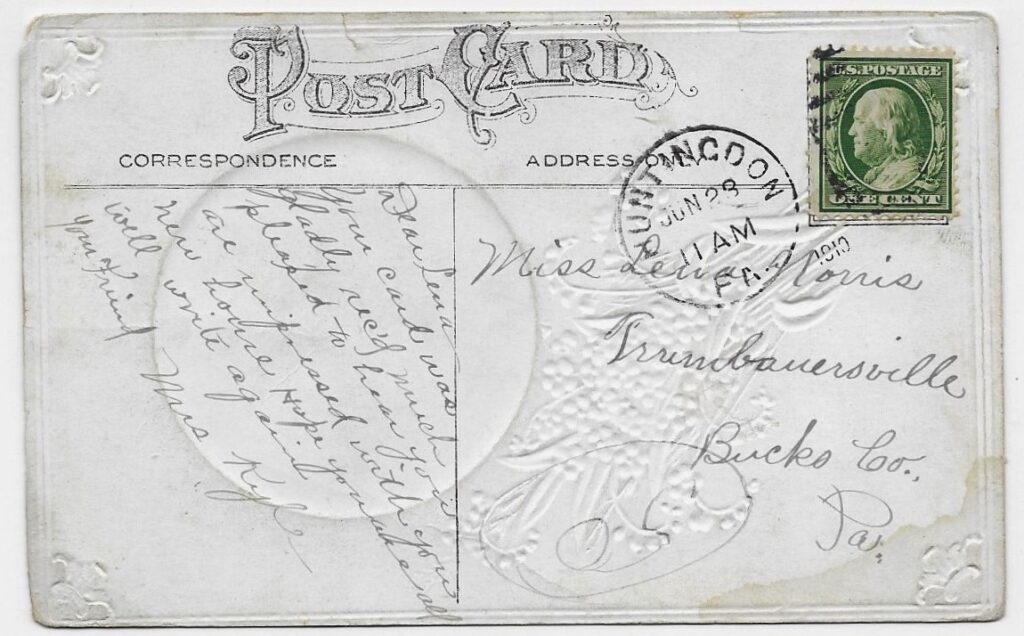 POST CARD
CORRESPONDENCE
ADDRESS ONLY
U.S. POSTAGE
ONE CENT
HUNTINGDON
JUN 28
11 AM
1910
PA.
Dear Lena
Your card was
gladly rec'd much
pleased to hear you
are impressed with your
new home Hope you are all
well write again
your Friend
Mrs Kyle
Miss Lena Norris
Trumbauersville
Bucks Co.,
Pa.